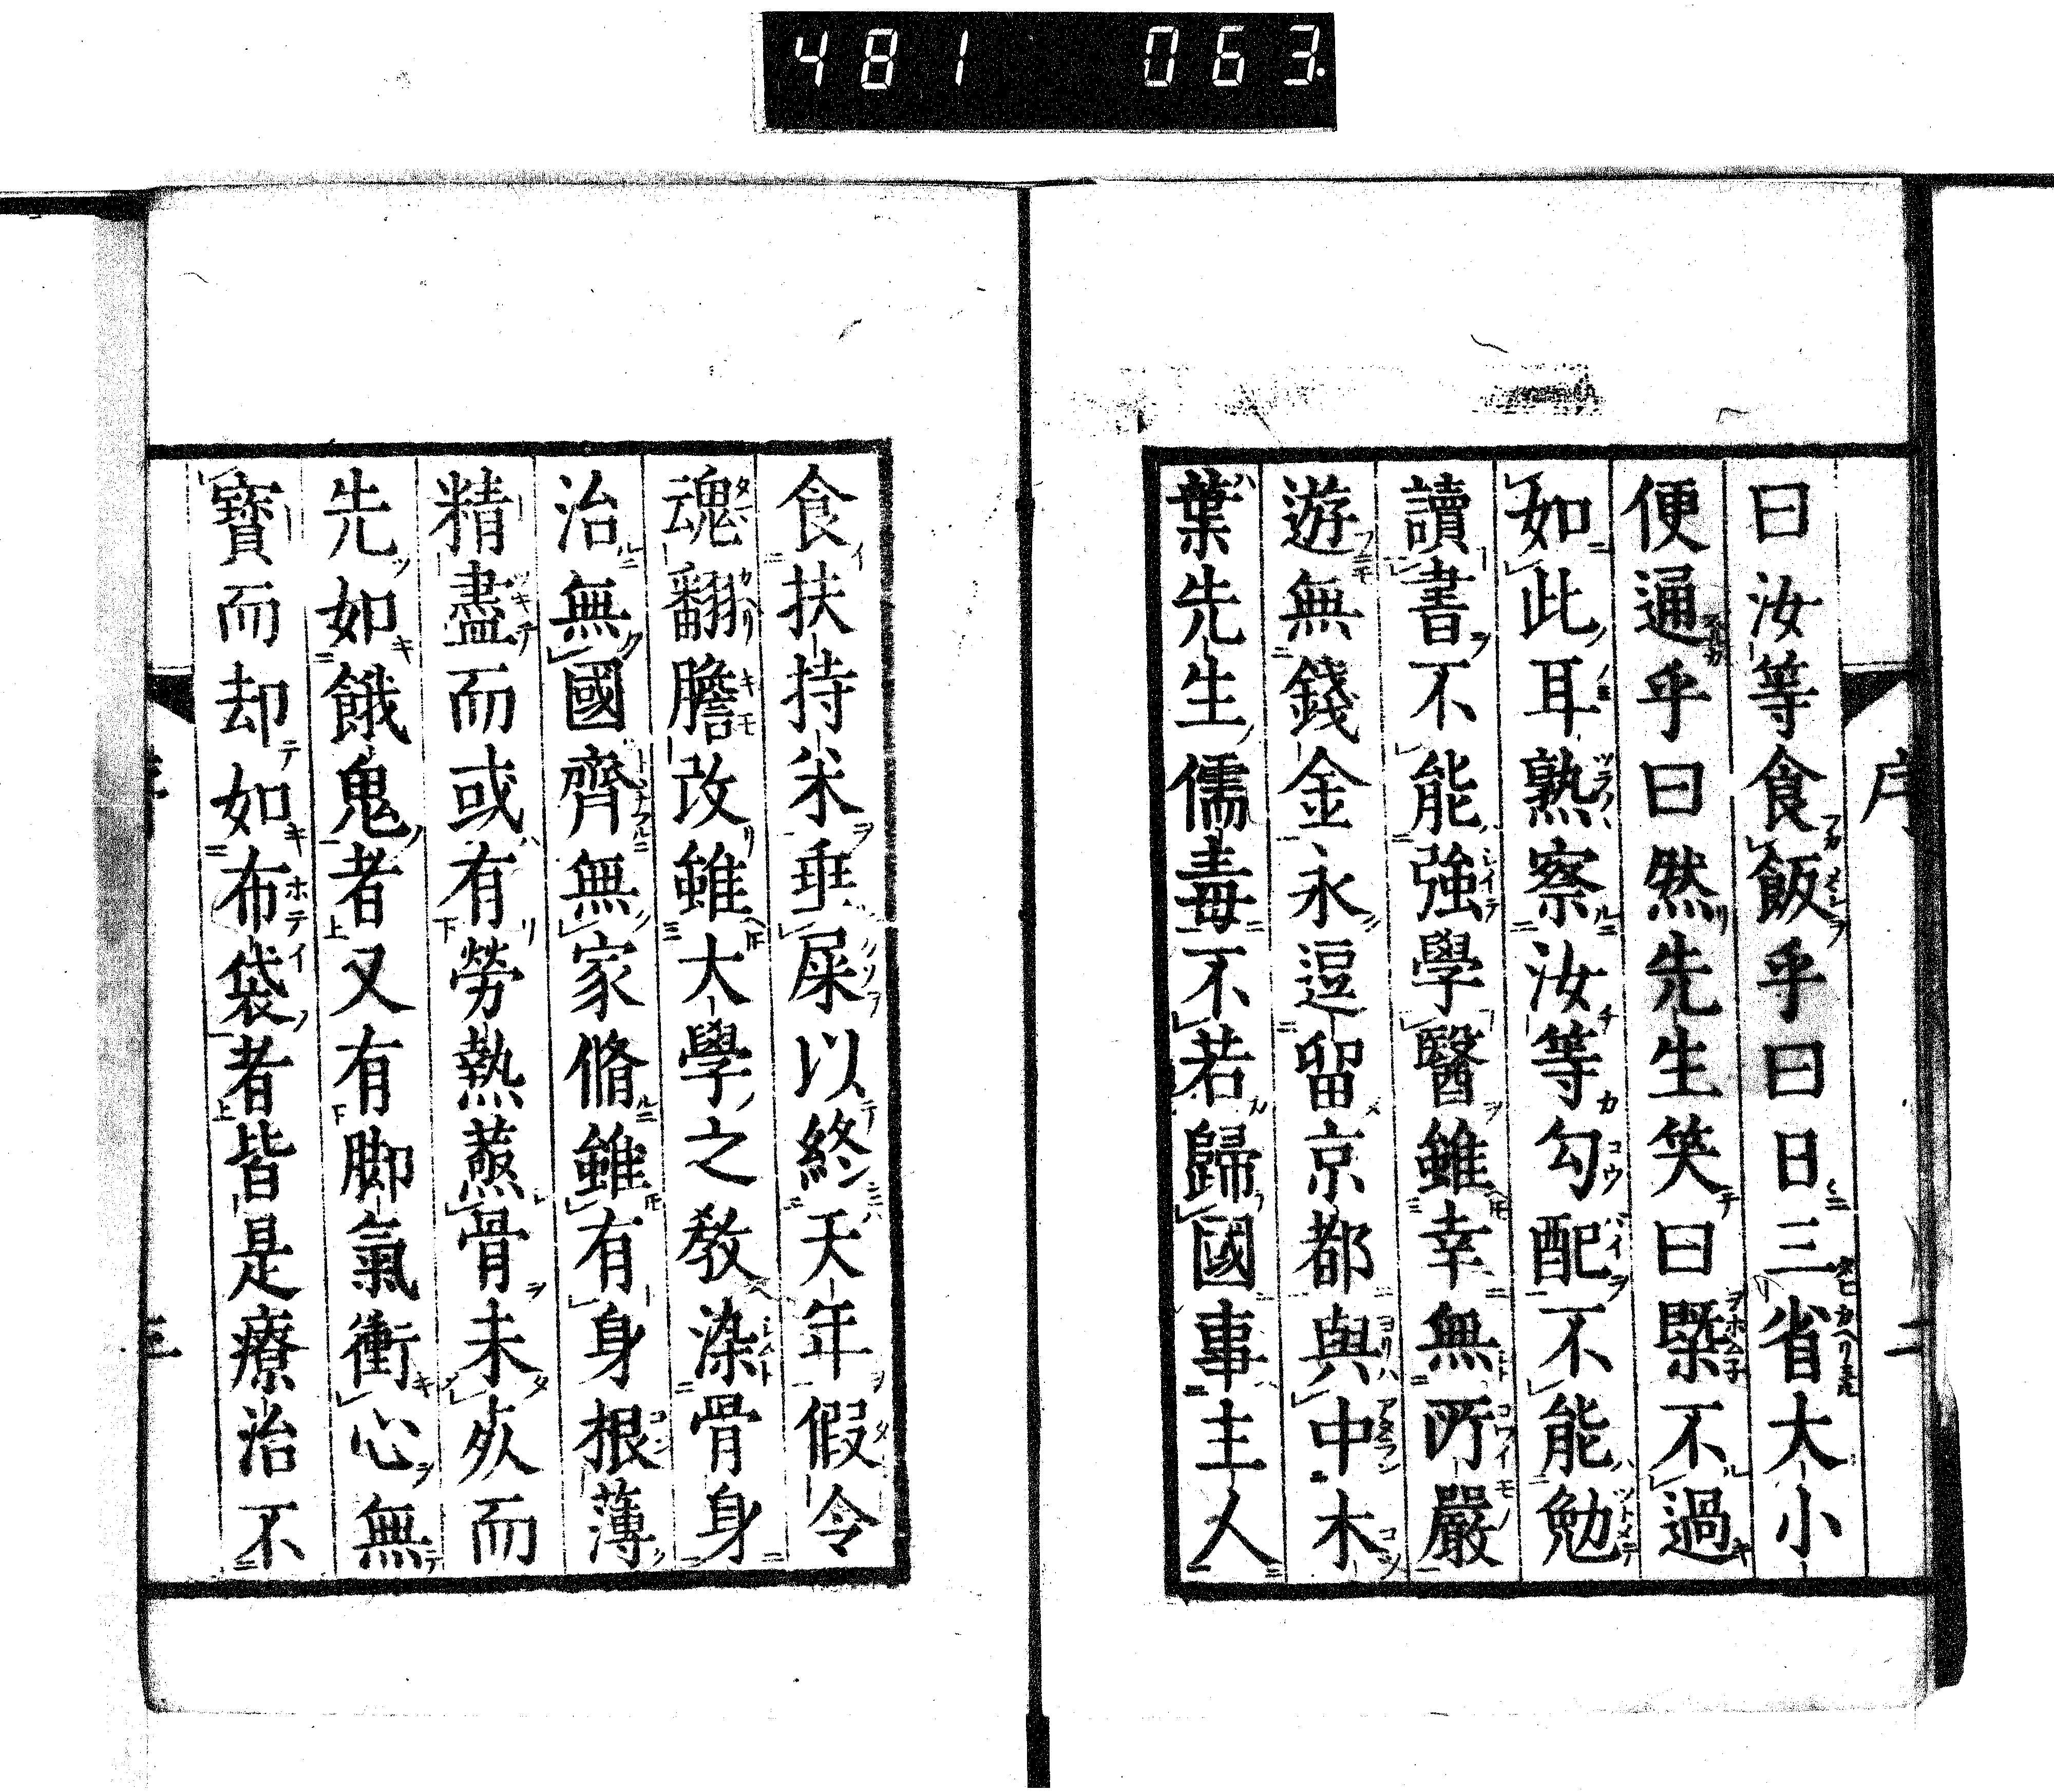 481 063.
序 二
曰汝等食飯乎曰日三省大小
便通乎曰然先生笑曰槩不過
如此耳熟察汝等勾配不能勉
讀書不能強學醫雖幸無所嚴
遊無錢金永逗留京都與中木
葉先生儒毒不若歸國事主人
食扶持米垂屎以終天年假令
魂翻膽改雖大學之教染骨身
治無國齊無家脩雖有身根薄
精盡而或有勞熱蒸骨未灸而
先如餓鬼者又有脚氣衝心無
寶而却如布袋者皆是療治不
三